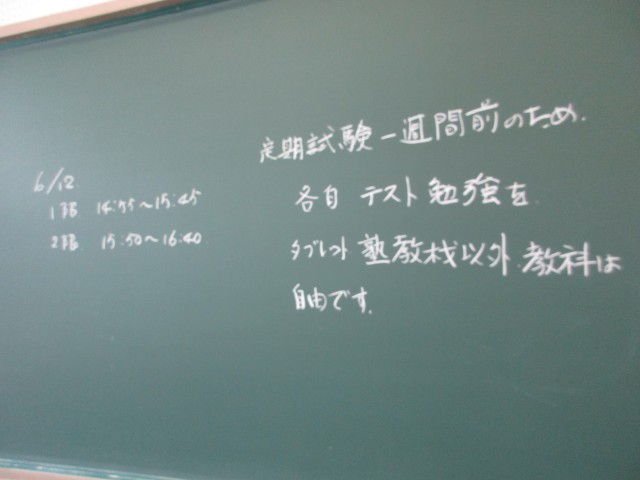 6/12
1限 14:55〜15:45
2限 15:50〜16:40
定期試験一週間前のため.
各自 テスト勉強を
タブレット 塾教材以外.教科は
自由です.